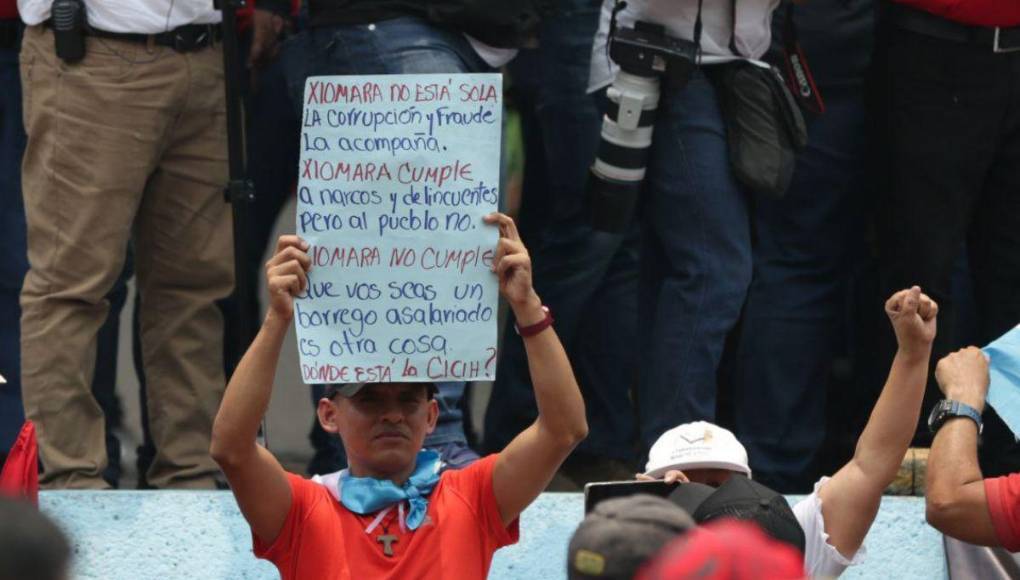 XIOMARA NO ESTÁ SOLA
LA CORRUPCIÓN y FRAUDE
La acompaña.
XIOMARA CUMPLE
A NARCOS y delincuentes
pero al pueblo no.
XIOMARA NO CUMPLE
Que vos seas un
borrego asalariado
es otra cosa.
DÓNDE ESTÁ la CICIH?